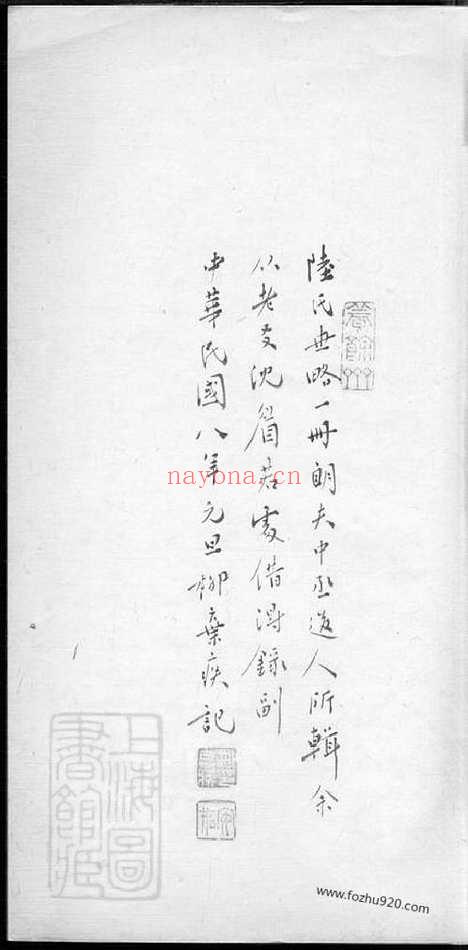 陸氏世略一冊朗夫中丞後人所輯余
从老友沈眉若處借得錄副
中華民國八年元旦柳棄疾記
上海圖
書館藏
nayona.cn
www.fozhu920.com